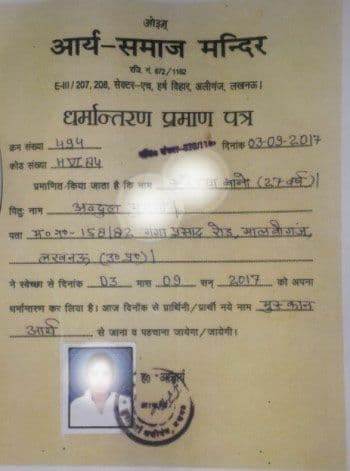 ओ३म्
आर्य-समाज मन्दिर
रजि. नं. 672/1162
E-III/207, 208, सेक्टर-एच, हर्ष विहार, अलीगंज, लखनऊ।
धर्मान्तरण प्रमाण पत्र
क्रम संख्या 494 दिनांक 03-09-2017
कोड संख्या HVI84
प्रमाणित किया जाता है कि नाम बानो (27 वर्ष)।
पितृ नाम अब्दुल
पता म० न०-158/82 गंगा प्रसाद रोड, मालवीगंज,
लखनऊ (उ० प्र०)।
ने स्वेच्छा से दिनांक 03 मास 09 सन् 2017 को अपना
धर्मान्तरण कर लिया है। आज दिनाँक से प्रार्थिनी/प्रार्थी नये नाम मुस्कान
आर्या से जाना व पहचाना जायेगा/जायेगी।
ह० आचार्य